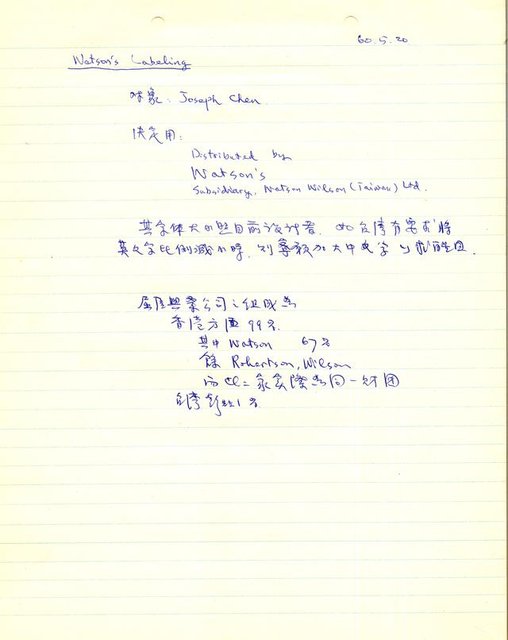 60.5.20
Watson's Labeling
対象: Joseph Chen
決定用:
Distributed by
Watson's
Subsidiary, Watson Wilson (Taiwan) Ltd.
其字体大小照目前設計者, 如台湾有要求將
英文字比例減小時, 則 大中文字以求醒目
屈臣興業公司之組成為
香港方面99%
其中Watson 67%
餘Robertson, Wilson
而此二家實際為同一財団
台灣 1%